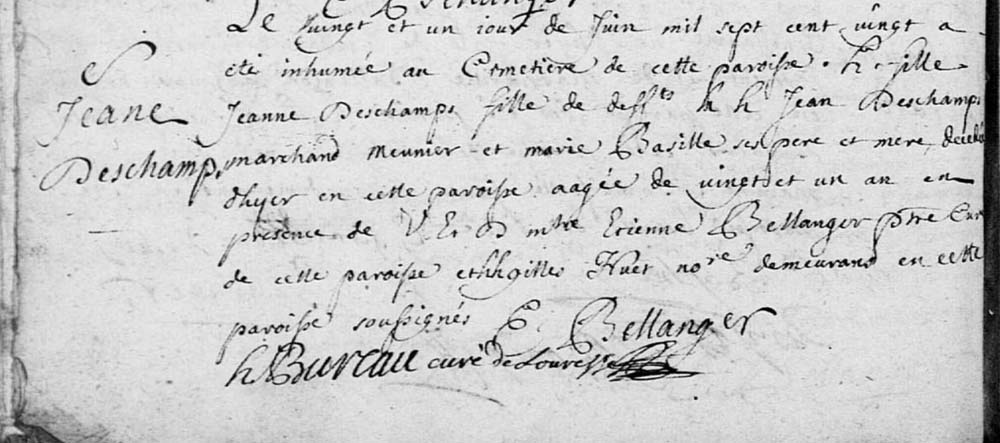 Le vingt et un iour de Juin mil sept cent vingt a
S
été inhumée au Cimetière de cette paroisse h fille
Jeane
Jeanne Deschamps fille de deffts h h Jean Deschamps
Deschamps
marchand meunier et marie Basille ses pere et mere, decedé
dhyer en cette paroisse aagée de vingt et un an en
presence de V Et D mtre Etienne Bellanger ptre Curé
de cette paroisse et hh gilles Huet nore demeurand en cette
paroisse soussignés E. Bellanger
h Bureau curé de Louresse